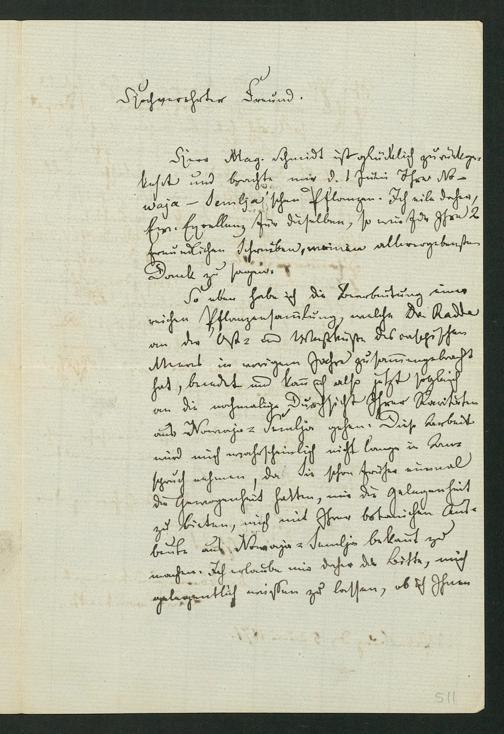 Hochverehrter Freund.
Herr Mag. Schmidt ist glücklich zurückge-
kehrt und brachte mir d. 1 Juni Ihre No-
waja-Semlja'schen Pflanzen. Ich eile daher,
Ew. Excellenz für dieselben, so wie für Ihre 2
freundlichen Schreiben, meinen allerergebensten
Dank zu sagen.
So eben habe ich die Bearbeitung einer
reichen Pflanzensammlung, welche Dr Radde
an der Ost- und Westküste des caspischen
Meeres in vorigem Jahre zusammengebracht
hat, beendet und kann ich also jetzt sogleich
an die nochmalige Durchsicht Ihrer Raritäten
aus Nowaja-Semlja gehen. Diese Arbeit
wird mich wahrscheinlich nicht lange in An-
spruch nehmen, da Sie schon früher einmal
die Gewogenheit hatten, mir die Gelegenheit
zu bieten, mich mit Ihrer botanischen Aus-
beute aus Nowaja-Semlja bekannt zu
machen. Ich erlaube mir daher die Bitte, mich
gelegentlich wissen zu lassen, ob ich Ihnen
511